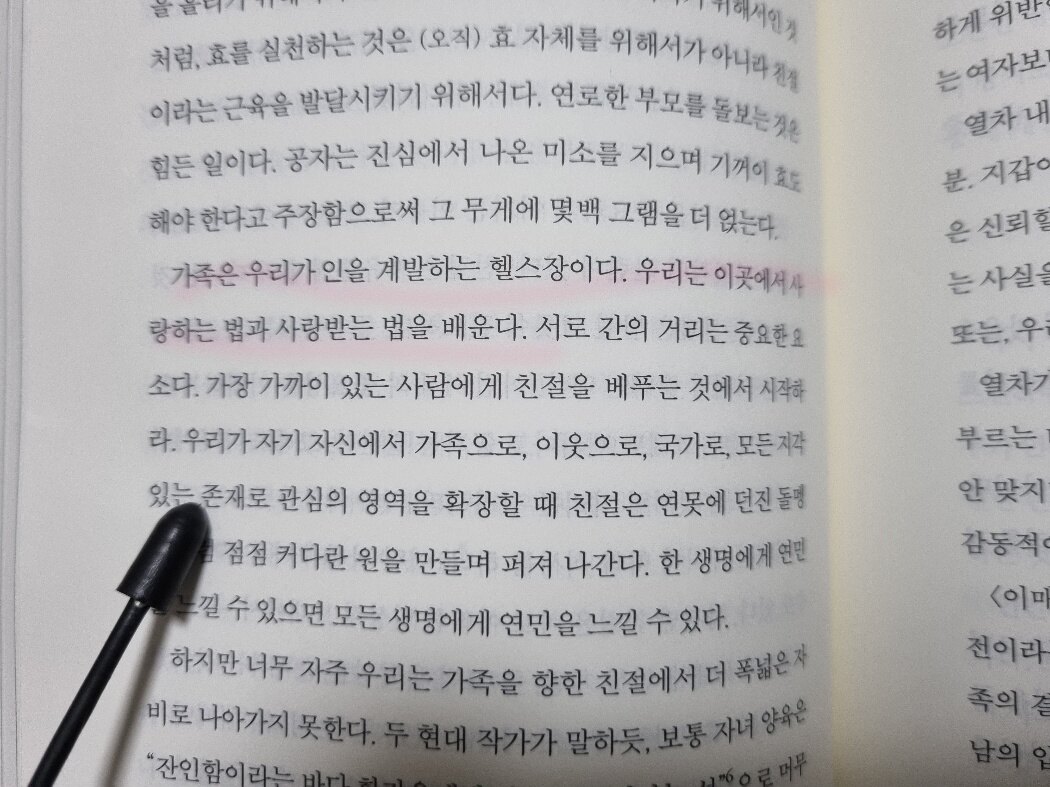 처럼, 효를 실천하는 것은 (오직) 효 자체를 위해서가 아니라 친절
이라는 근육을 발달시키기 위해서다. 연로한 부모를 돌보는 것은
힘든 일이다. 공자는 진심에서 나온 미소를 지으며 기꺼이 효도
해야 한다고 주장함으로써 그 무게에 몇백 그램을 더 얹는다.
가족은 우리가 인을 계발하는 헬스장이다. 우리는 이곳에서 사
랑하는 법과 사랑받는 법을 배운다. 서로 간의 거리는 중요한 요
소다. 가장 가까이 있는 사람에게 친절을 베푸는 것에서 시작하
라. 우리가 자기 자신에서 가족으로, 이웃으로, 국가로, 모든 지각
있는 존재로 관심의 영역을 확장할 때 친절은 연못에 던진 돌멩
점점 커다란 원을 만들며 퍼져 나간다. 한 생명에게 연민
느낄 수 있으면 모든 생명에게 연민을 느낄 수 있다.
하지만 너무 자주 우리는 가족을 향한 친절에서 더 폭넓은 자
비로 나아가지 못한다. 두 현대 작가가 말하듯, 보통 자녀 양육은
“잔인함이라는
하게
는 여자보
열차 내
분. 지갑
은 신뢰할
는 사실을
또는, 우리
열차가
부르는
안 맞지
감동적
전이라
족의 결
남의